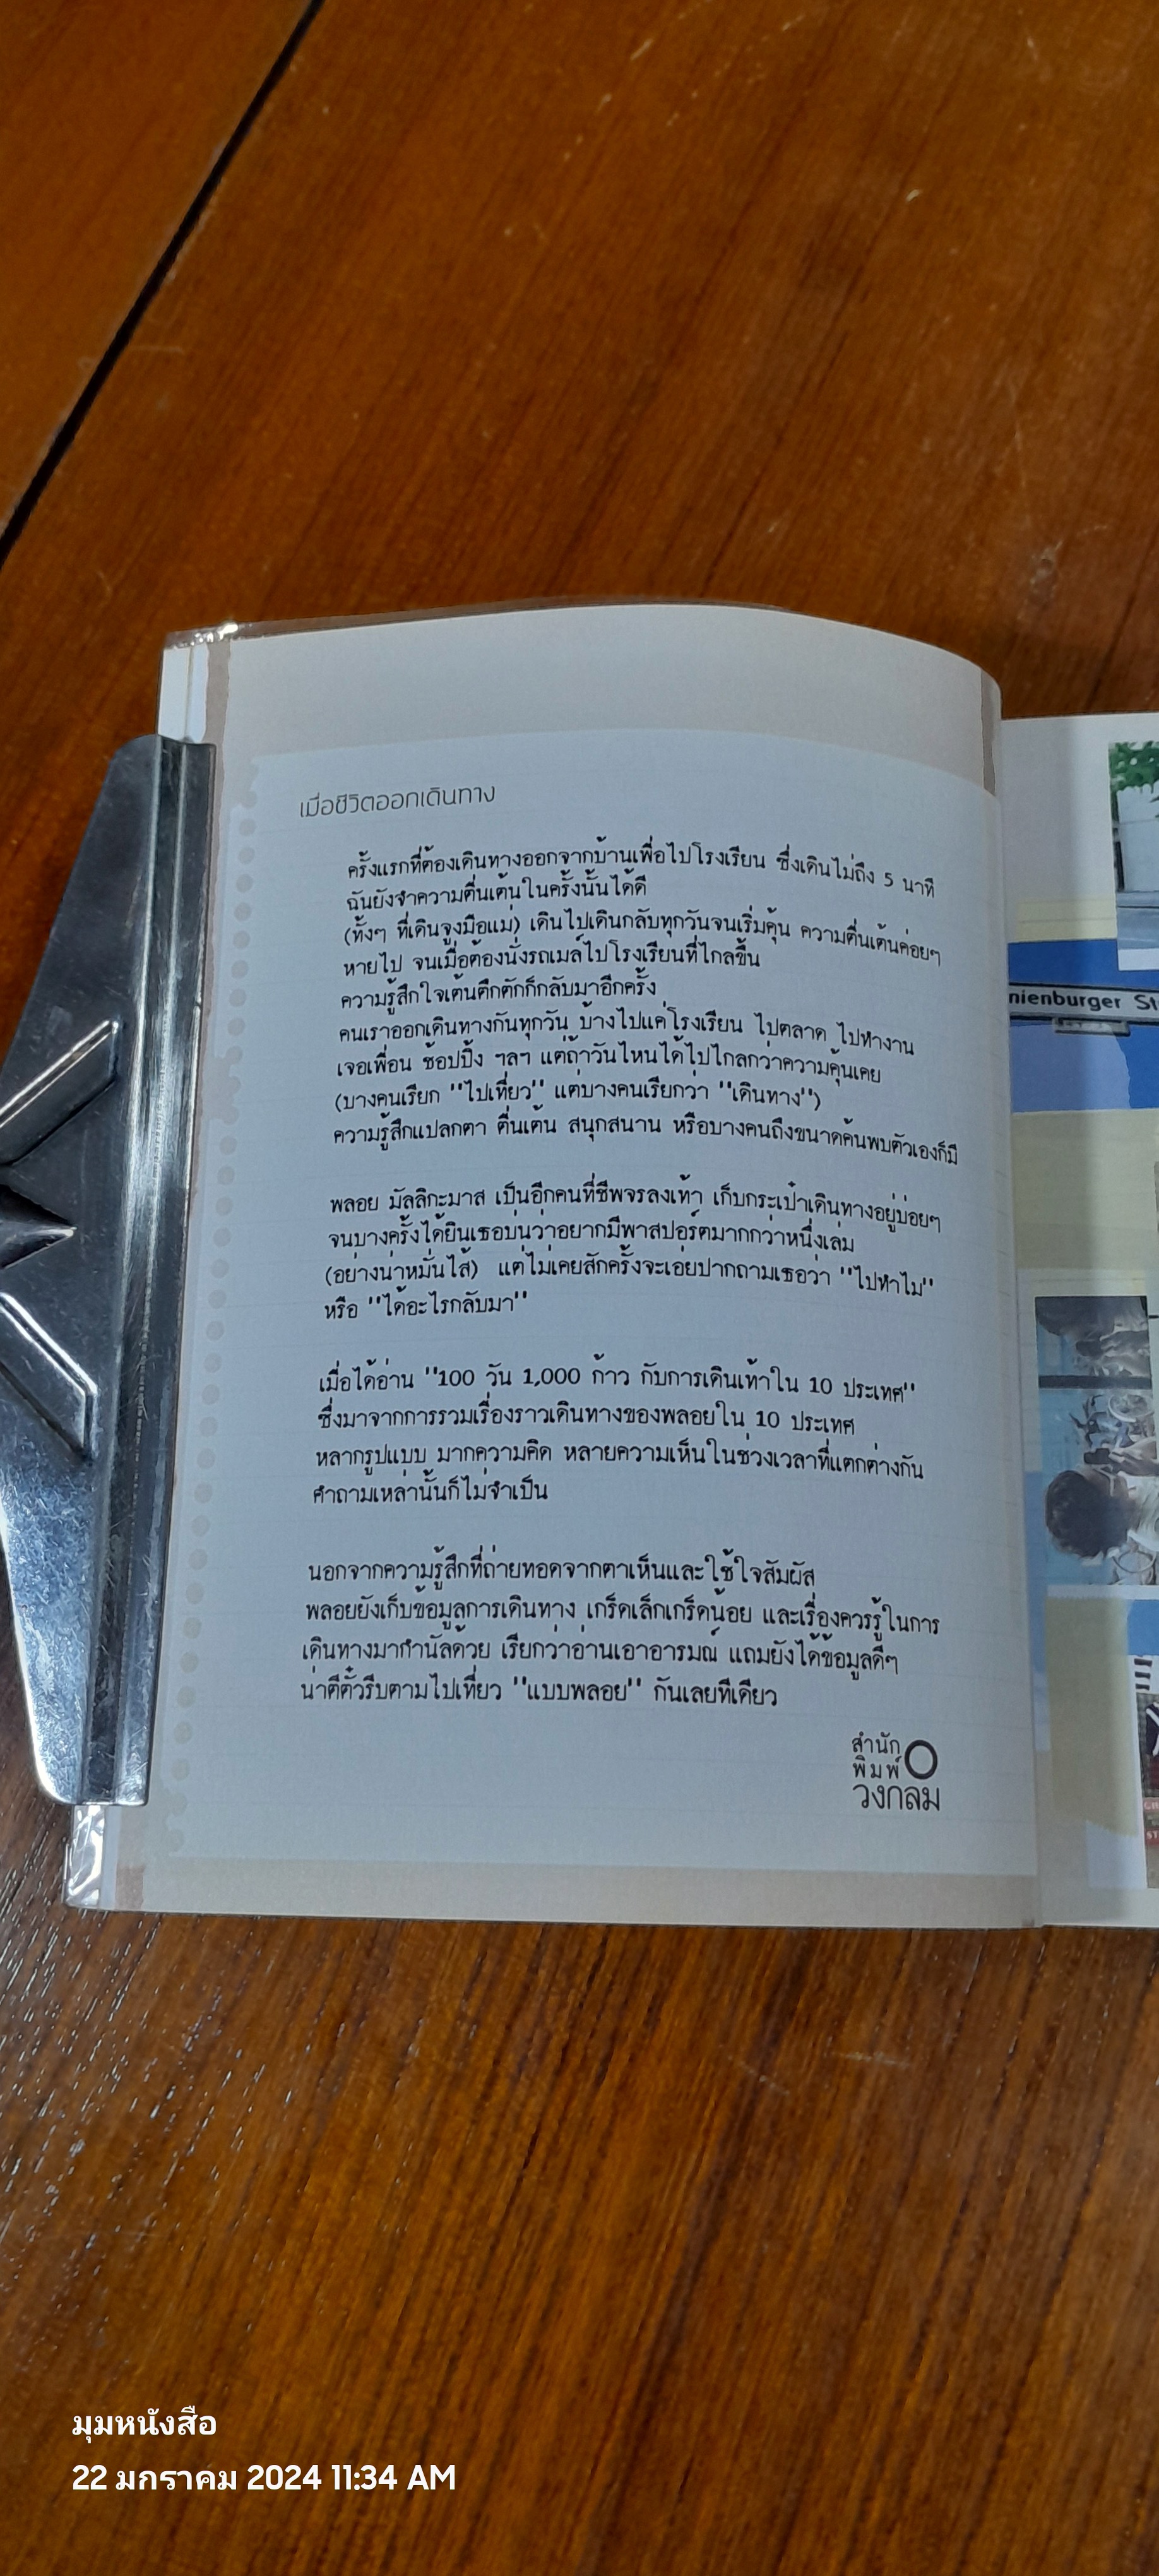 เมื่อชีวิตออกเดินทาง
ครั้งแรกที่ต้องเดินทางออกจากบ้านเพื่อไปโรงเรียน ซึ่งเดินไม่ถึง 5 นาที
ฉันยังจำความตื่นเต้นในครั้งนั้นได้ดี
(ทั้งๆ ที่เดินจูงมือแม่) เดินไปเดินกลับทุกวันจนเริ่มคุ้น ความตื่นเต้นค่อยๆ
หายไป จนเมื่อต้องนั่งรถเมล์ไปโรงเรียนที่ไกลขึ้น
ความรู้สึกใจเต้นตึกตักก็กลับมาอีกครั้ง
คนเราออกเดินทางกันทุกวัน บ้างไปแค่โรงเรียน ไปตลาด ไปทำงาน
เจอเพื่อน ช้อปปิ้ง ฯลฯ แต่ถ้าวันไหนได้ไปไกลกว่าความคุ้นเคย
(บางคนเรียก "ไปเที่ยว" แต่บางคนเรียกว่า "เดินทาง")
ความรู้สึกแปลกตา ตื่นเต้น สนุกสนาน หรือบางคนถึงขนาดค้นพบตัวเองก็มี
พลอย มัลลิกะมาส เป็นอีกคนที่ชีพจรลงเท้า เก็บกระเป๋าเดินทางอยู่บ่อยๆ
จนบางครั้งได้ยินเธอบ่นว่าอยากมีพาสปอร์ตมากกว่าหนึ่งเล่ม
(อย่างน่าหมั่นไส้) แต่ไม่เคยสักครั้งจะเอ่ยปากถามเธอว่า "ไปทำไม"
หรือ "ได้อะไรกลับมา"
เมื่อได้อ่าน "100 วัน 1,000 ก้าว กับการเดินเท้าใน 10 ประเทศ"
ซึ่งมาจากการรวมเรื่องราวเดินทางของพลอยใน 10 ประเทศ
หลากรูปแบบ มากความคิด หลายความเห็นในช่วงเวลาที่แตกต่างกัน
คำถามเหล่านั้นก็ไม่จำเป็น
นอกจากความรู้สึกที่ถ่ายทอดจากตาเห็นและใช้ใจสัมผัส
พลอยยังเก็บข้อมูลการเดินทาง เกร็ดเล็กเกร็ดน้อย และเรื่องควรรู้ในการ
เดินทางมากำนัลด้วย เรียกว่าอ่านเอาอารมณ์ แถมยังได้ข้อมูลดีๆ
น่าตีตั๋วรีบตามไปเที่ยว "แบบพลอย" กันเลยทีเดียว
สำนัก
พิมพ์
วงกลม
nienburger St
มุมหนังสือ
22 มกราคม 2024 11:34 AM